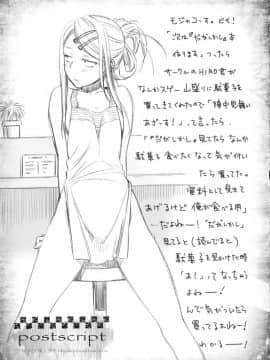 モジャコっす。ドモ!
「次は『だがしかし』本
作ります」っつったら
サークルのHIRO君が
なんかスゲー山盛りに駄菓子を
買ってきてくれたので「陣中見舞い
あざーす!」って言ったら
「『だがしかし』見てたらなんか
駄菓子食べたくなって気が付い
たら買ってた。
資料として見せて
あげるけど俺が食べる用」
…だよねー!『だがしかし』
見てると(読んでると)
駄菓子を見かけた時
「お!」ってなっちゃう
よねー!
んで気がついたら
買ってるよねー!
わかるー!
postscript